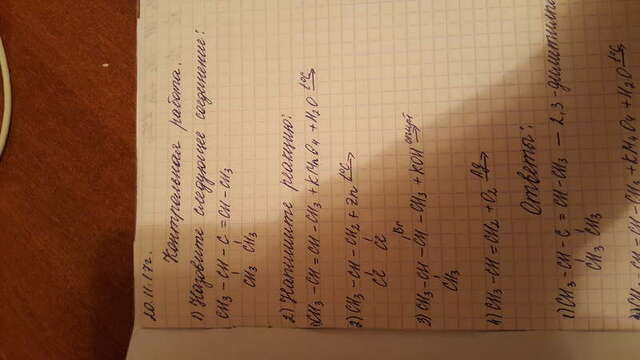 20.11.17г.
Контрольная работа.
1) Назовите следующее соединение:
CH₃ – CH – C = CH – CH₃
CH₃ CH₃
2) Напишите реакцию:
1) CH₃ – CH = CH – CH₃ + KMnO₄ + H₂O t°C →
2) CH₃ – CH – CH₂ + Zn t°C →
Cl Cl
Br
3) CH₃ – CH – CH – CH₃ + KOH спирт →
CH₃
4) CH₃ – CH = CH₂ + O₂ Ag →
Ответы:
1) CH₃ – CH – C = CH – CH₃ — 2,3-диметилп
CH₃ CH₃
CH₃ – CH = CH – CH₃ + KMnO₄ + H₂O t°C →